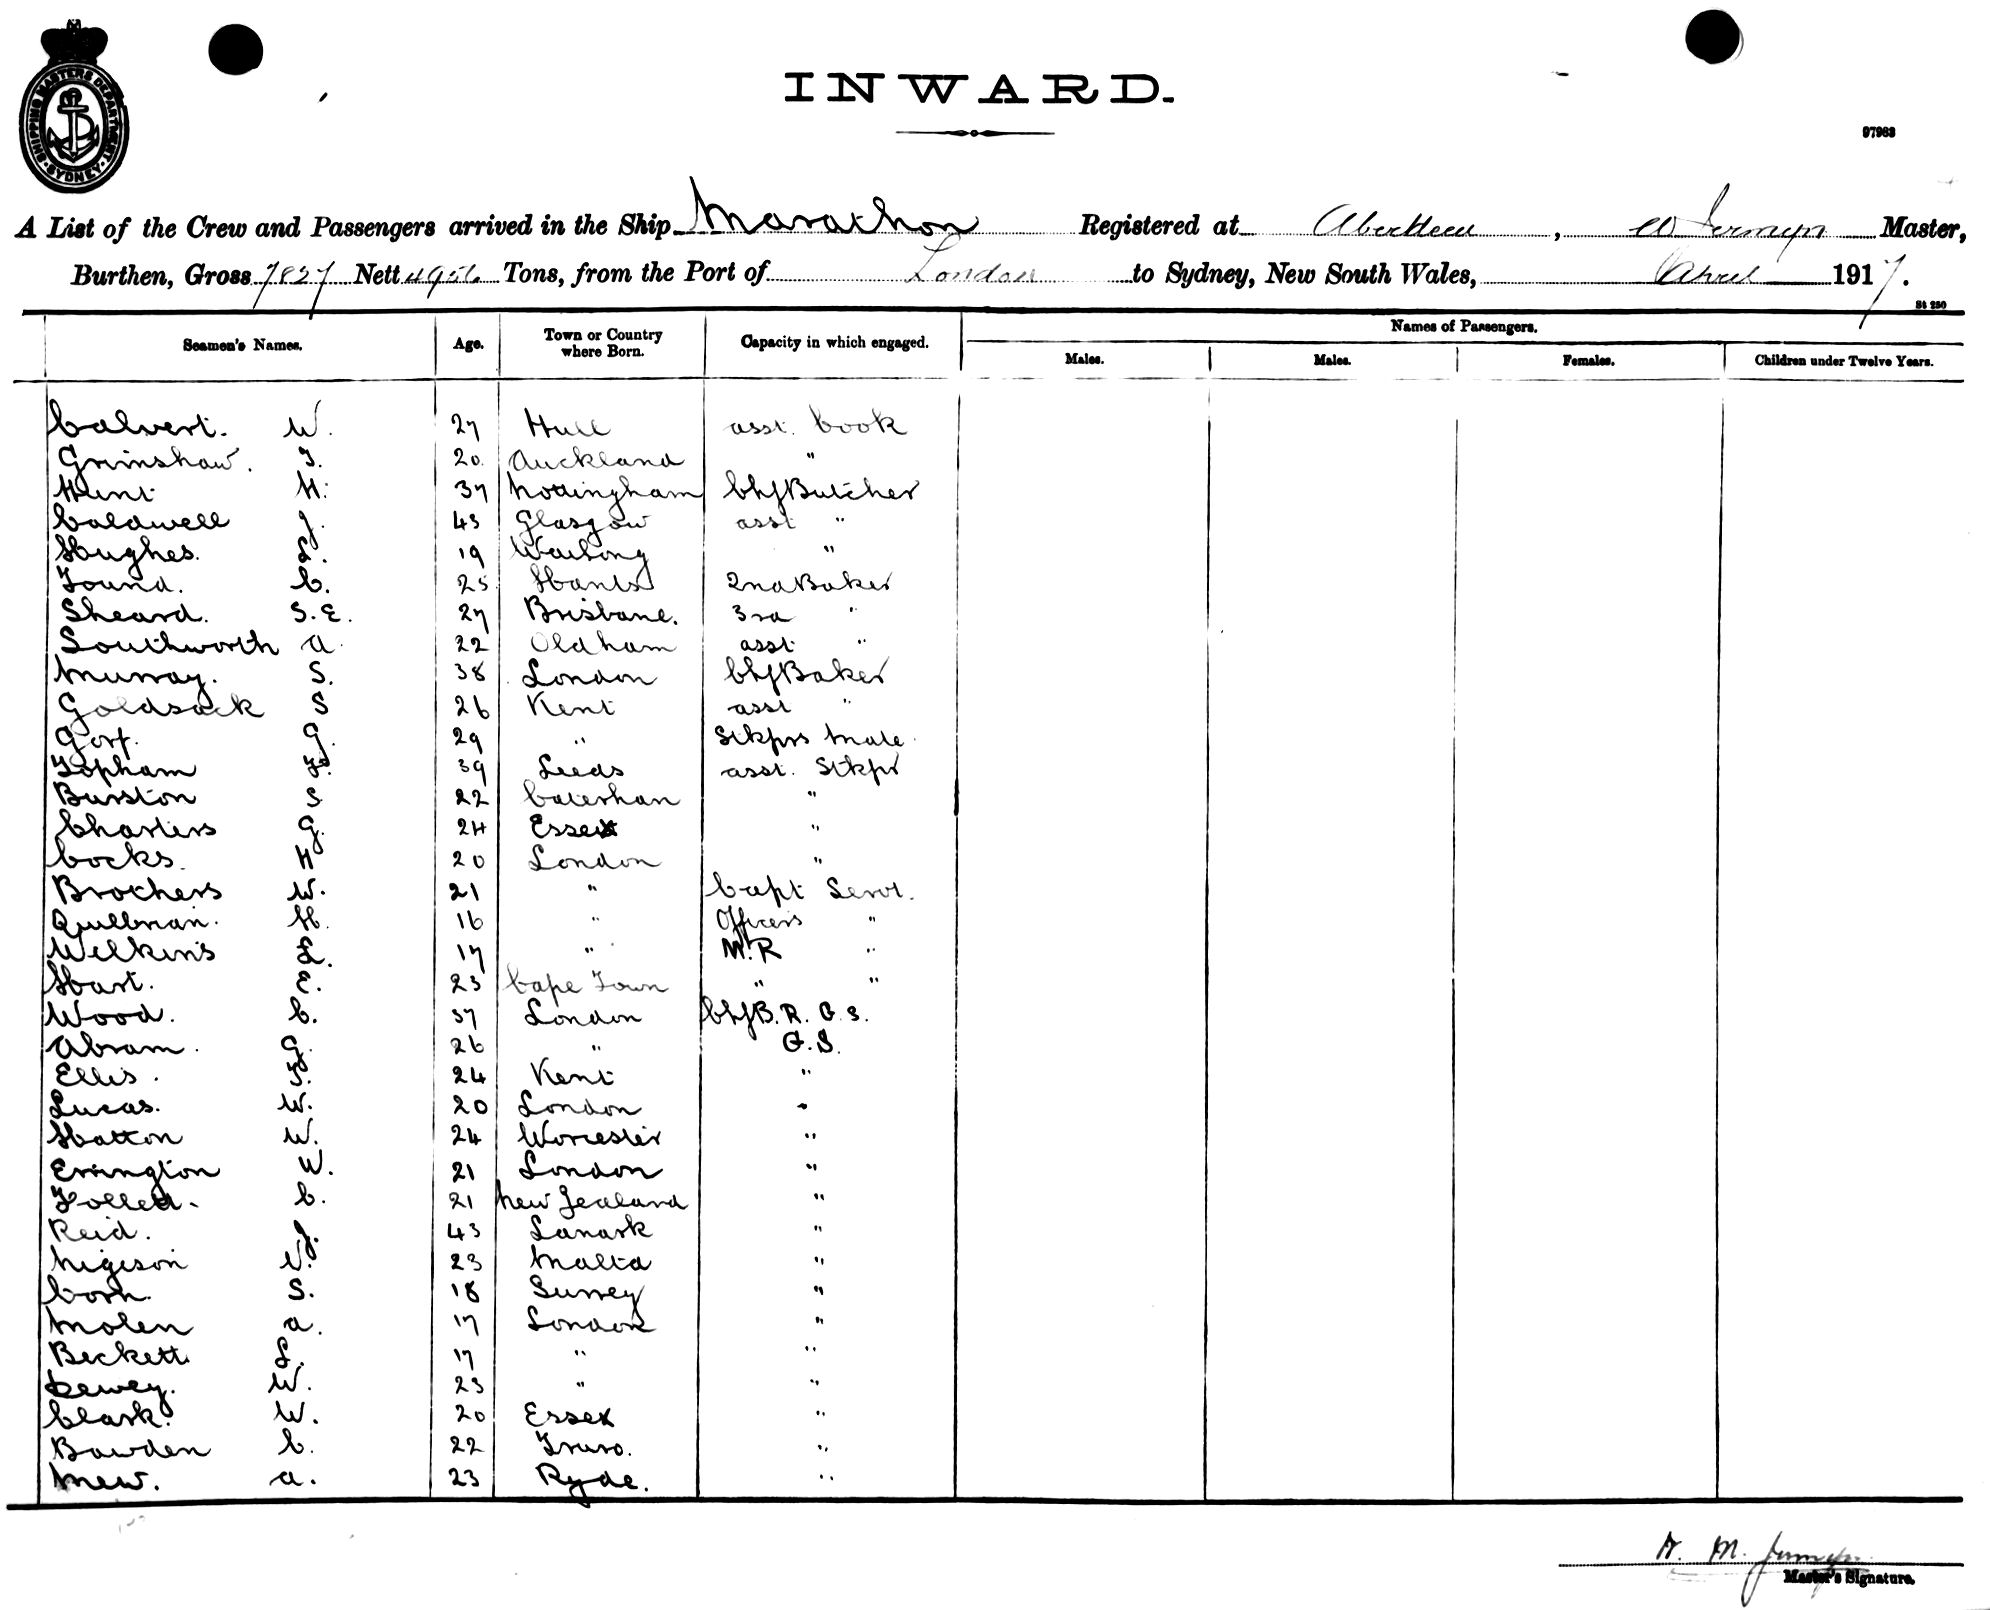 SHIPPING MASTERS DEPARTMENT
SYDNEY
INWARD.
97983
A List of the Crew and Passengers arrived in the Ship Marathon Registered at Aberdeen, W Jermyn Master,
Burthen, Gross 7827 Nett 4956 Tons, from the Port of London to Sydney, New South Wales, April 1917.
St 250
Names of Passengers.
Seamen's Names. Age. Town or Country where Born. Capacity in which engaged. Males. Males. Females. Children under Twelve Years.
Calvert. W. 27 Hull asst. Cook
Grimshaw. T. 20 Auckland "
Hunt H. 37 Nottingham Chf Butcher
Caldwell J. 43 Glasgow asst "
Hughes. L. 19 "
Found. C. 25 Hants 2nd Baker
Sheard. S. E. 27 Brisbane. 3rd "
Southworth A. 22 Oldham asst "
Murray. S. 38 London Chf Baker
Goldsack S 26 Kent asst "
Gorf. G. 29 " Stkprs Mate
Topham F. 39 Leeds asst. Stkpr
Burston S 22 Caterham "
Charters G. 24 Essex "
Cocks. H 20 London "
Brothers W. 21 " Capt Servt.
Quillman. H. 16 " Officers "
Wilkins L. 17 " M.R "
Hart. E. 23 Cape Town " "
Wood. C. 37 London Chf B. R. G. S.
Abram. G. 26 " G.S.
Ellis. T. 24 Kent "
Lucas. W. 20 London "
Hatton W. 24 Worcester "
Errington W. 21 London "
C. 21 New Zealand "
Reid. J. 43 Lanark "
Nigison V. 23 Malta "
Corn. S. 18 Surrey "
Molen A. 17 London "
Beckett L. 17 " "
Dewey. W. 23 " "
Clark. W. 20 Essex "
Bowden C. 22 Truro. "
Mew. A. 23 Ryde. "
W. M. Jermyn
Master's Signature.